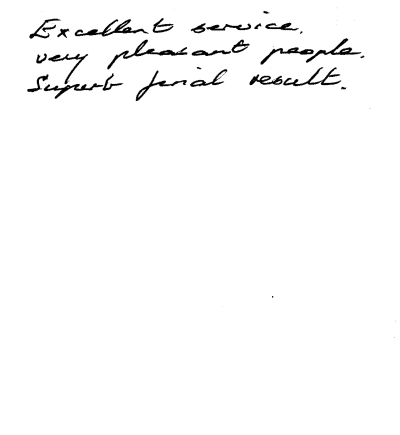 Excellent service.
very pleasant people.
Superb final result.